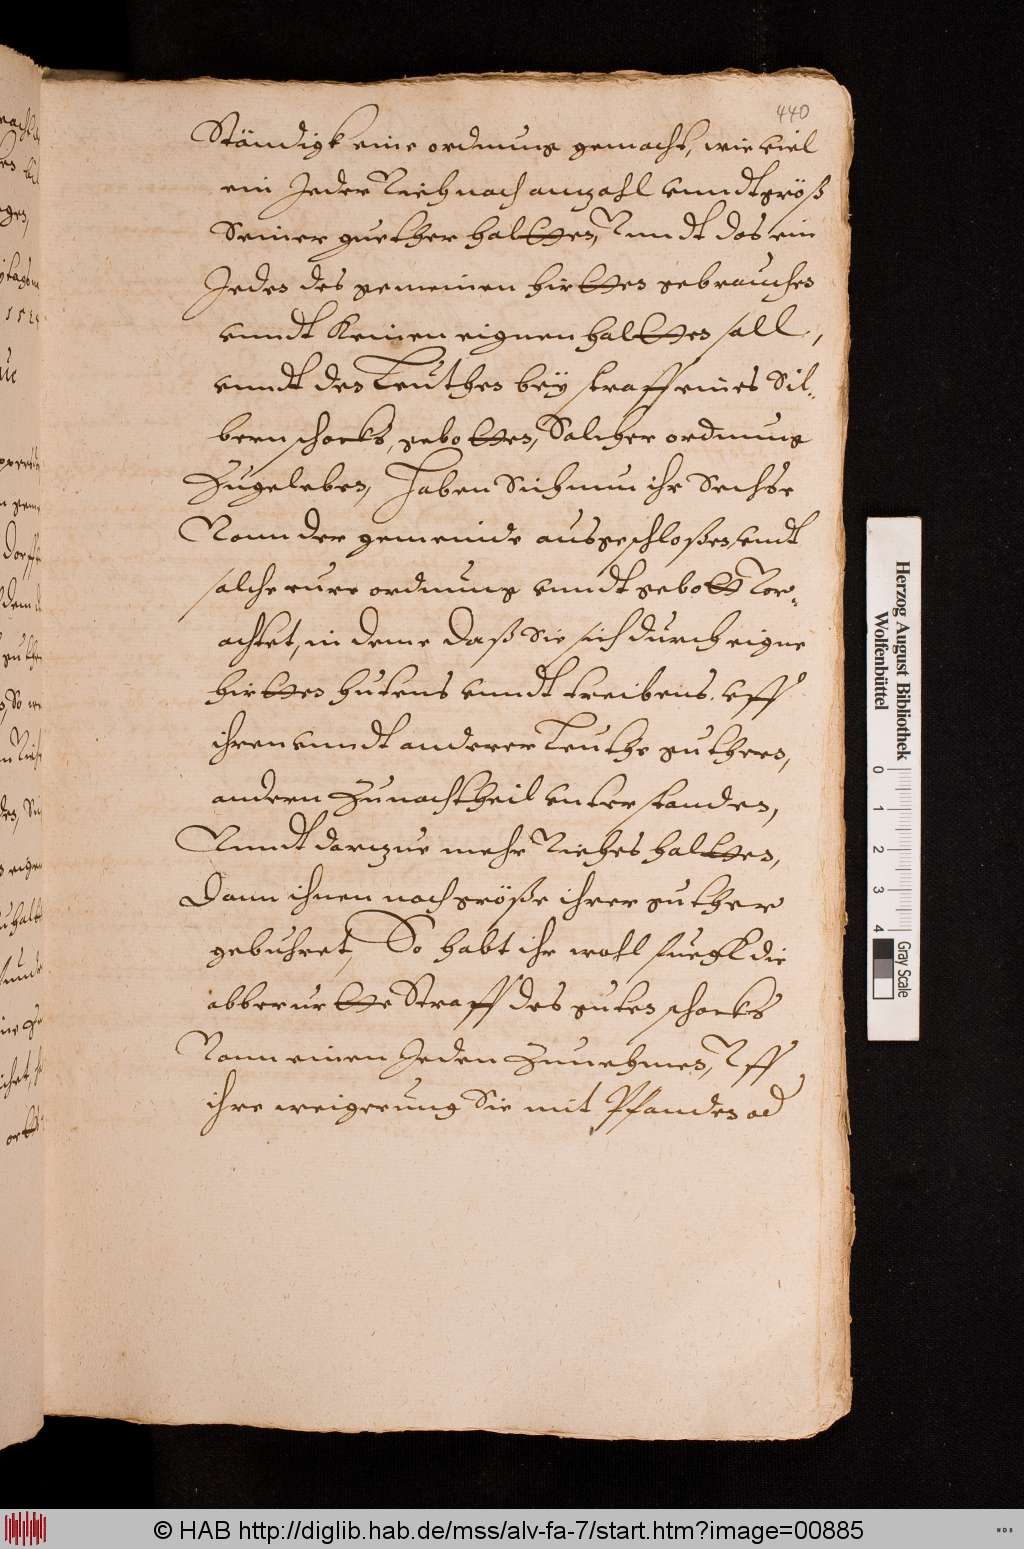 440
Ständigk eine ordnung gemacht, wie viel
ein Jeder Vieh nach anzahl vnndt größ
Seiner guether haltten, Vnndt das ein
Jeder des gemeinen hirtten gebrauchen
vnndt keinen eignen haltten soll,
vnndt den Leuthen beÿ straff eines Sil-
bern schocks, gebotten, Solcher ordnung
Zugeleben, Haben Sich nun ihr Sechse
Von der gemeinde ausgeschloßen, vndt
solche eure ordnung vnndt gebott Vor-
achtet, in deme Daß Sie sich durch eigne
hirtten hutens vnndt treibens vff
ihren vnndt anderer Leuthe guthern,
andern Zu nachtheil vnterstanden,
Vnndt darzue mehr Viehes haltten,
Dann ihnen nach größe ihrer guther
gebuhret, So habt ihr wohl fuegk die
abberurtte Straff des guten schocks
Von einen Jeden Zunehmen, Vff
ihre weigerung Sie mit Pfanden od
Herzog August Bibliothek
Wolfenbüttel
0 1 2 3 4
Gray Scale
© HAB http://diglib.hab.de/mss/alv-fa-7/start.htm?image=00885